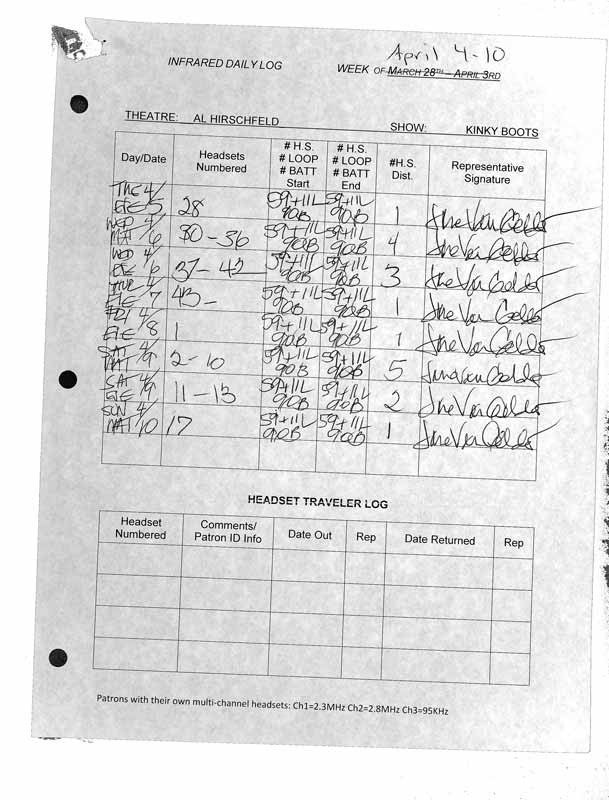 April 4-10
INFRARED DAILY LOG WEEK OF MARCH 28TH - APRIL 3RD
THEATRE: AL HIRSCHFELD SHOW: KINKY BOOTS
Day/Date Headsets Numbered # H.S. # LOOP # BATT Start # H.S. # LOOP # BATT End #H.S. Dist. Representative Signature
TUE 4/5 EVE 28 59+11L 90B 59+11L 90B 1
WED 4/6 MAT 30-36 59+11L 90B 59+11L 90B 4
WED 4/6 EVE 37-42 59+11L 90B 59+11L 90B 3
THUR 4/7 EVE 43- 59+11L 90B 59+11L 90B 1
FRI 4/8 EVE 1 59+11L 90B 59+11L 90B 1
SAT 4/9 MAT 2-10 59+11L 90B 59+11L 90B 5
SAT 4/9 EVE 11-13 59+11L 90B 59+11L 90B 2
SUN 4/10 MAT 17 59+11L 90B 59+11L 90B 1
HEADSET TRAVELER LOG
Headset Numbered Comments/ Patron ID Info Date Out Rep Date Returned Rep
Patrons with their own multi-channel headsets: Ch1=2.3MHz Ch2=2.8MHz Ch3=95KHz